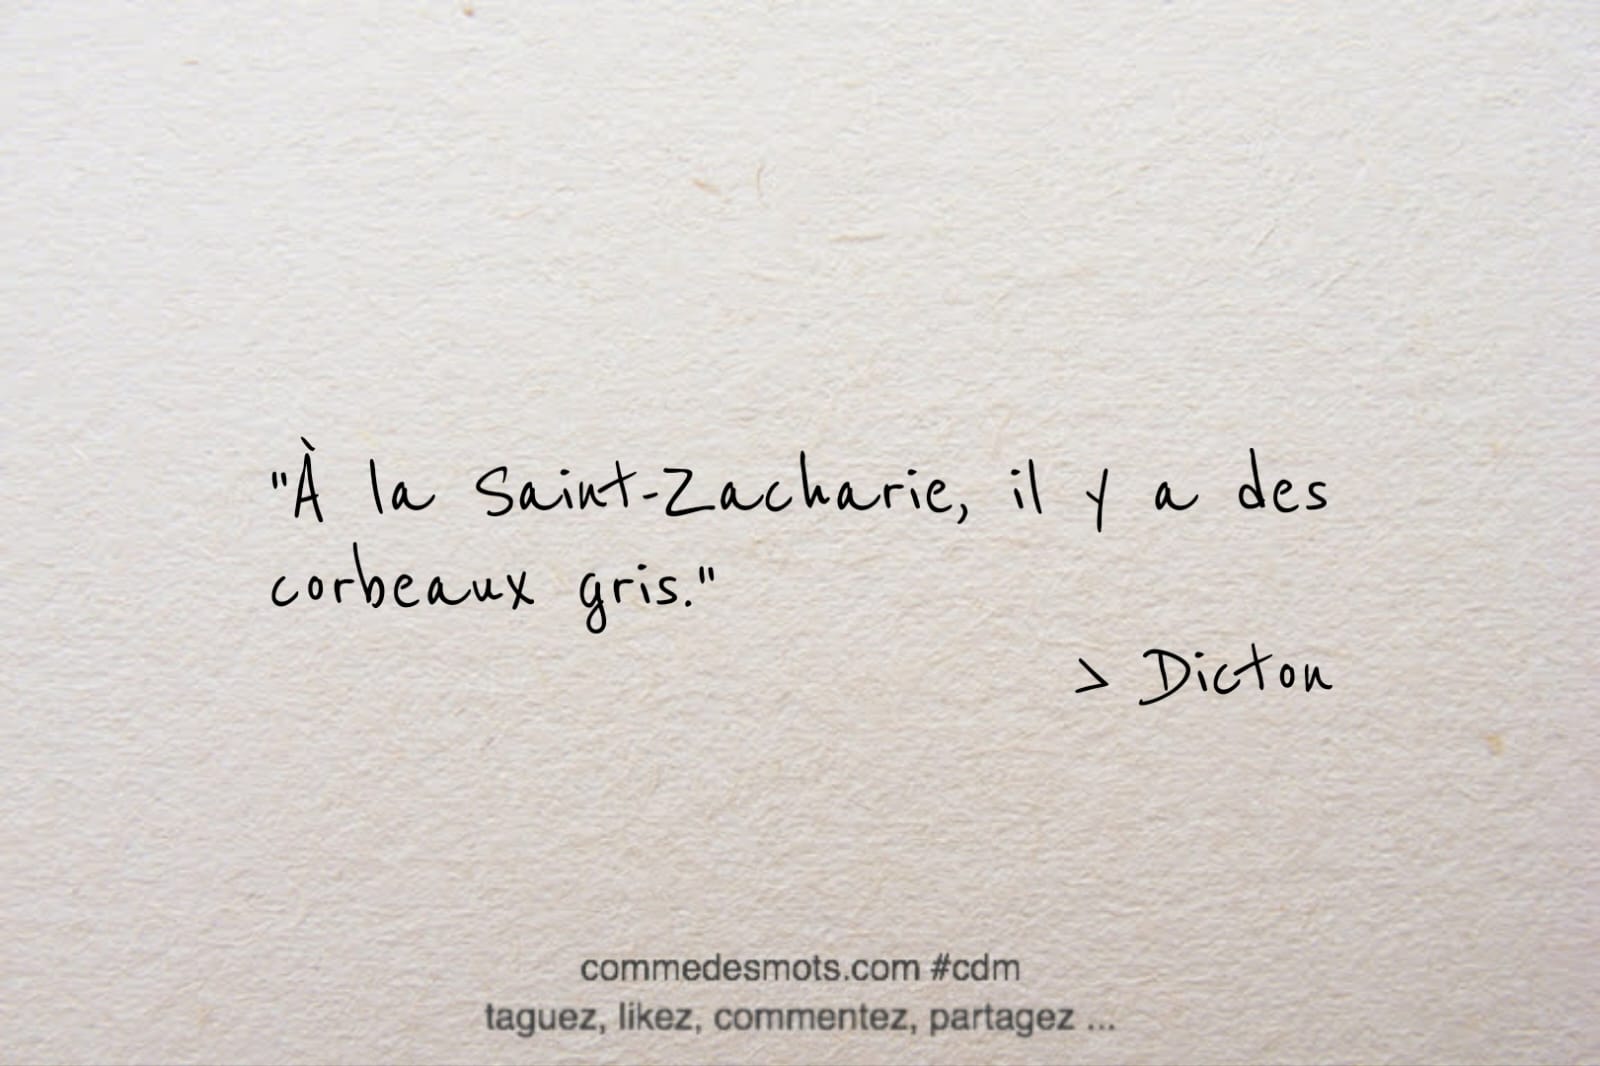 "À la Saint-Zacharie, il y a des
corbeaux gris."
> Dicton
commedesmots.com #cdm
taguez, likez, commentez, partagez ...